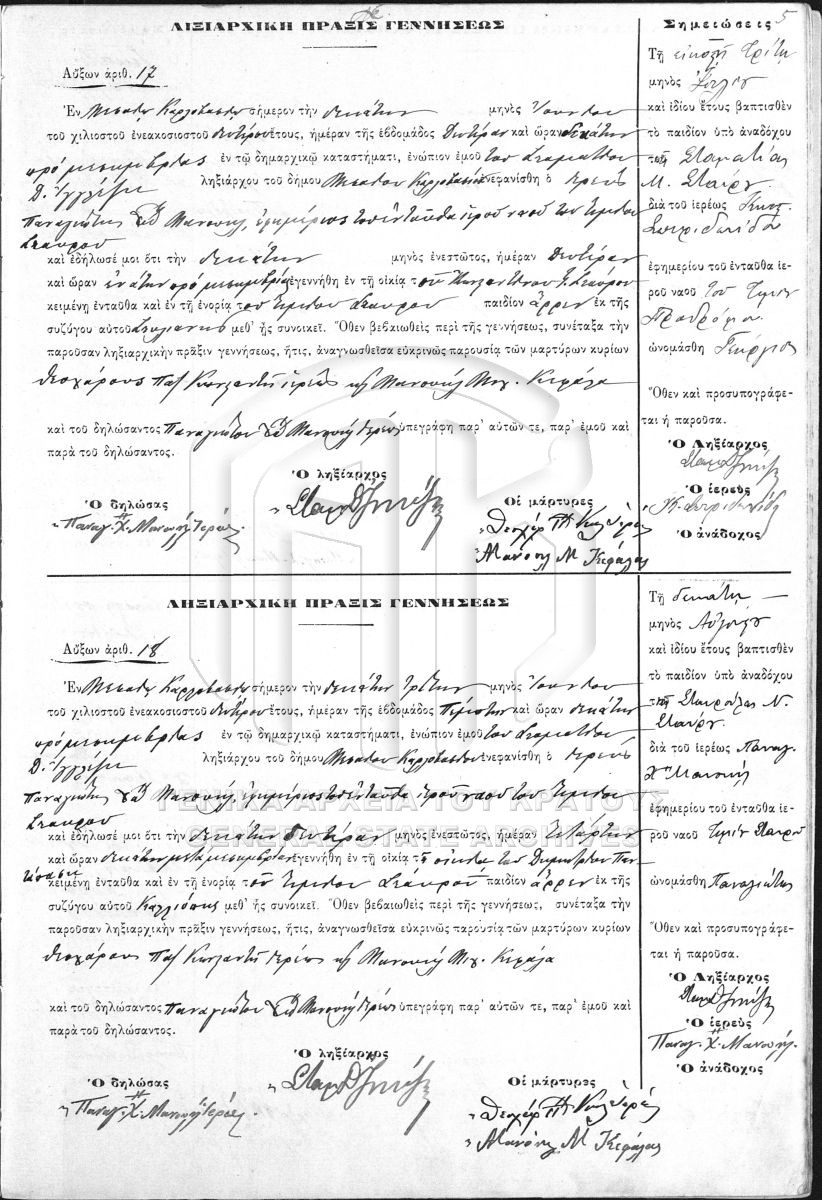 5
ΛΙΞΙΑΡΧΙΚΗ ΠΡΑΞΙΣ ΓΕΝΝΗΣΕΩΣ
Αὔξων ἀριθ. 17
Ἐν Μεσαίῳ Καρλοβασίῳ σήμερον τὴν δεκάτην μηνὸς Ἰουνίου
τοῦ χιλιοστοῦ ἐνεακοσιοστοῦ δευτέρου ἔτους, ἡμέραν τῆς ἑβδομάδος Δευτέραν καὶ ὥραν δεκάτην
πρὸ μεσημβρίας ἐν τῷ δημαρχικῷ καταστήματι, ἐνώπιον ἐμοῦ τοῦ Σταματίου
Δ. ληξιάρχου τοῦ δήμου Μεσαίου Καρλοβασίου ἐνεφανίσθη ὁ ἱερεὺς
Παναγιώτης Χ΄΄ Μανουήλ, ἐφημέριος τοῦ ἐνταῦθα ἱεροῦ ναοῦ τοῦ Τιμίου
Σταυροῦ
καὶ ἐδήλωσέ μοι ὅτι τὴν δεκάτην μηνὸς ἐνεστῶτος, ἡμέραν Δευτέραν
καὶ ὥραν ἐνάτην πρὸ μεσημβρίας ἐγεννήθη ἐν τῇ οἰκίᾳ τοῦ Κωνσταντίνου Σταύρου
κειμένῃ ἐνταῦθα καὶ ἐν τῇ ἐνορίᾳ τοῦ Τιμίου Σταυροῦ παιδίον ἄρρεν ἐκ τῆς
συζύγου αὐτοῦ Στυλιανῆς μεθ᾽ ἧς συνοικεῖ. Ὅθεν βεβαιωθεὶς περὶ τῆς γεννήσεως, συνέταξα τὴν
παροῦσαν ληξιαρχικὴν πρᾶξιν γεννήσεως, ἥτις, ἀναγνωσθεῖσα εὐκρινῶς παρουσίᾳ τῶν μαρτύρων κυρίων
Θεοχάρους Παπ Κωνσταντῆ ἱερέως καὶ Μανουὴλ Μιχ. Κεφάλα
καὶ τοῦ δηλώσαντος Παναγιώτου Χ΄΄ Μανουὴλ ἱερέως ὑπεγράφη παρ᾽ αὐτῶν τε, παρ᾽ ἐμοῦ καὶ
παρὰ τοῦ δηλώσαντος.
Ὁ ληξίαρχος
Ὁ δηλώσας
Παναγ. Χ΄΄ Μανουὴλ Ἱερεύς.
Οἱ μάρτυρες
Μανουὴλ Μ Κεφάλας
Σημειώσεις
Τῇ εἰκοστῇ τρίτῃ
μηνὸς Ἰουνίου
καὶ ἰδίου ἔτους βαπτισθὲν
τὸ παιδίον ὑπὸ ἀναδόχου
τῆς Σταματίας
Μ. Σταύρου
διὰ τοῦ ἱερέως
Σπυριδωνίδου
ἐφημερίου τοῦ ἐνταῦθα ἱε-
ροῦ ναοῦ τοῦ Τιμίου
Προδρόμου
ὠνομάσθη Γεώργιος
Ὅθεν καὶ προσυπογράφε-
ται ἡ παροῦσα.
Ὁ Ληξίαρχος
Ὁ ἱερεὺς
Ὁ ἀνάδοχος
ΛΗΞΙΑΡΧΙΚΗ ΠΡΑΞΙΣ ΓΕΝΝΗΣΕΩΣ
Αὔξων ἀριθ. 18
Ἐν Μεσαίῳ Καρλοβασίῳ σήμερον τὴν δεκάτην τρίτην μηνὸς Ἰουνίου
τοῦ χιλιοστοῦ ἐνεακοσιοστοῦ δευτέρου ἔτους, ἡμέραν τῆς ἑβδομάδος Πέμπτην καὶ ὥραν δεκάτην
πρὸ μεσημβρίας ἐν τῷ δημαρχικῷ καταστήματι, ἐνώπιον ἐμοῦ τοῦ Σταματίου
Δ. ληξιάρχου τοῦ δήμου Μεσαίου Καρλοβασίου ἐνεφανίσθη ὁ ἱερεὺς
Παναγιώτης Χ΄΄ Μανουήλ, ἐφημέριος τοῦ ἐνταῦθα ἱεροῦ ναοῦ τοῦ Τιμίου
Σταυροῦ
καὶ ἐδήλωσέ μοι ὅτι τὴν δεκάτην δευτέραν μηνὸς ἐνεστῶτος, ἡμέραν Τετάρτην
καὶ ὥραν δεκάτην μετὰ μεσημβρίαν ἐγεννήθη ἐν τῇ οἰκίᾳ τοῦ Δημητρίου
κειμένῃ ἐνταῦθα καὶ ἐν τῇ ἐνορίᾳ τοῦ Τιμίου Σταυροῦ παιδίον ἄρρεν ἐκ τῆς
συζύγου αὐτοῦ Καλλιόπης μεθ᾽ ἧς συνοικεῖ. Ὅθεν βεβαιωθεὶς περὶ τῆς γεννήσεως, συνέταξα τὴν
παροῦσαν ληξιαρχικὴν πρᾶξιν γεννήσεως, ἥτις, ἀναγνωσθεῖσα εὐκρινῶς παρουσίᾳ τῶν μαρτύρων κυρίων
Θεοχάρους Παπ Κωνσταντῆ ἱερέως καὶ Μανουὴλ Μιχ. Κεφάλα
καὶ τοῦ δηλώσαντος Παναγιώτου Χ΄΄ Μανουὴλ ἱερέως ὑπεγράφη παρ᾽ αὐτῶν τε, παρ᾽ ἐμοῦ καὶ
παρὰ τοῦ δηλώσαντος.
Ὁ ληξίαρχος
Ὁ δηλώσας
Παναγ. Χ΄΄ Μανουὴλ Ἱερεύς.
Οἱ μάρτυρες
Μανουὴλ Μ Κεφάλας
Τῇ δεκάτῃ
μηνὸς Αὐγούστου
καὶ ἰδίου ἔτους βαπτισθὲν
τὸ παιδίον ὑπὸ ἀναδόχου
τῆς Σταυρούλας Ν.
Σταύρου
διὰ τοῦ ἱερέως Παναγ.
Χ΄΄ Μανουὴλ
ἐφημερίου τοῦ ἐνταῦθα ἱε-
ροῦ ναοῦ Τιμίου Σταυροῦ
ὠνομάσθη Παναγιώτης
Ὅθεν καὶ προσυπογράφε-
ται ἡ παροῦσα.
Ὁ Ληξίαρχος
Ὁ ἱερεὺς
Παναγ. Χ΄΄ Μανουήλ.
Ὁ ἀνάδοχος
ΓΕΝΙΚΑ ΑΡΧΕΙΑ ΤΟΥ ΚΡΑΤΟΥΣ
GENERAL STATE ARCHIVES